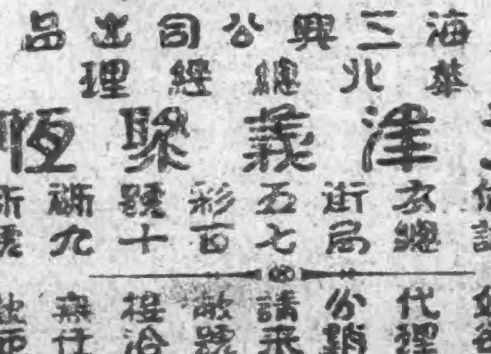 海三興公司出品
華北總經理
津義聚恆
衣街五彩號衚衕
總局七百十九號
代理
分銷
請飛
敝號
接洽
無任